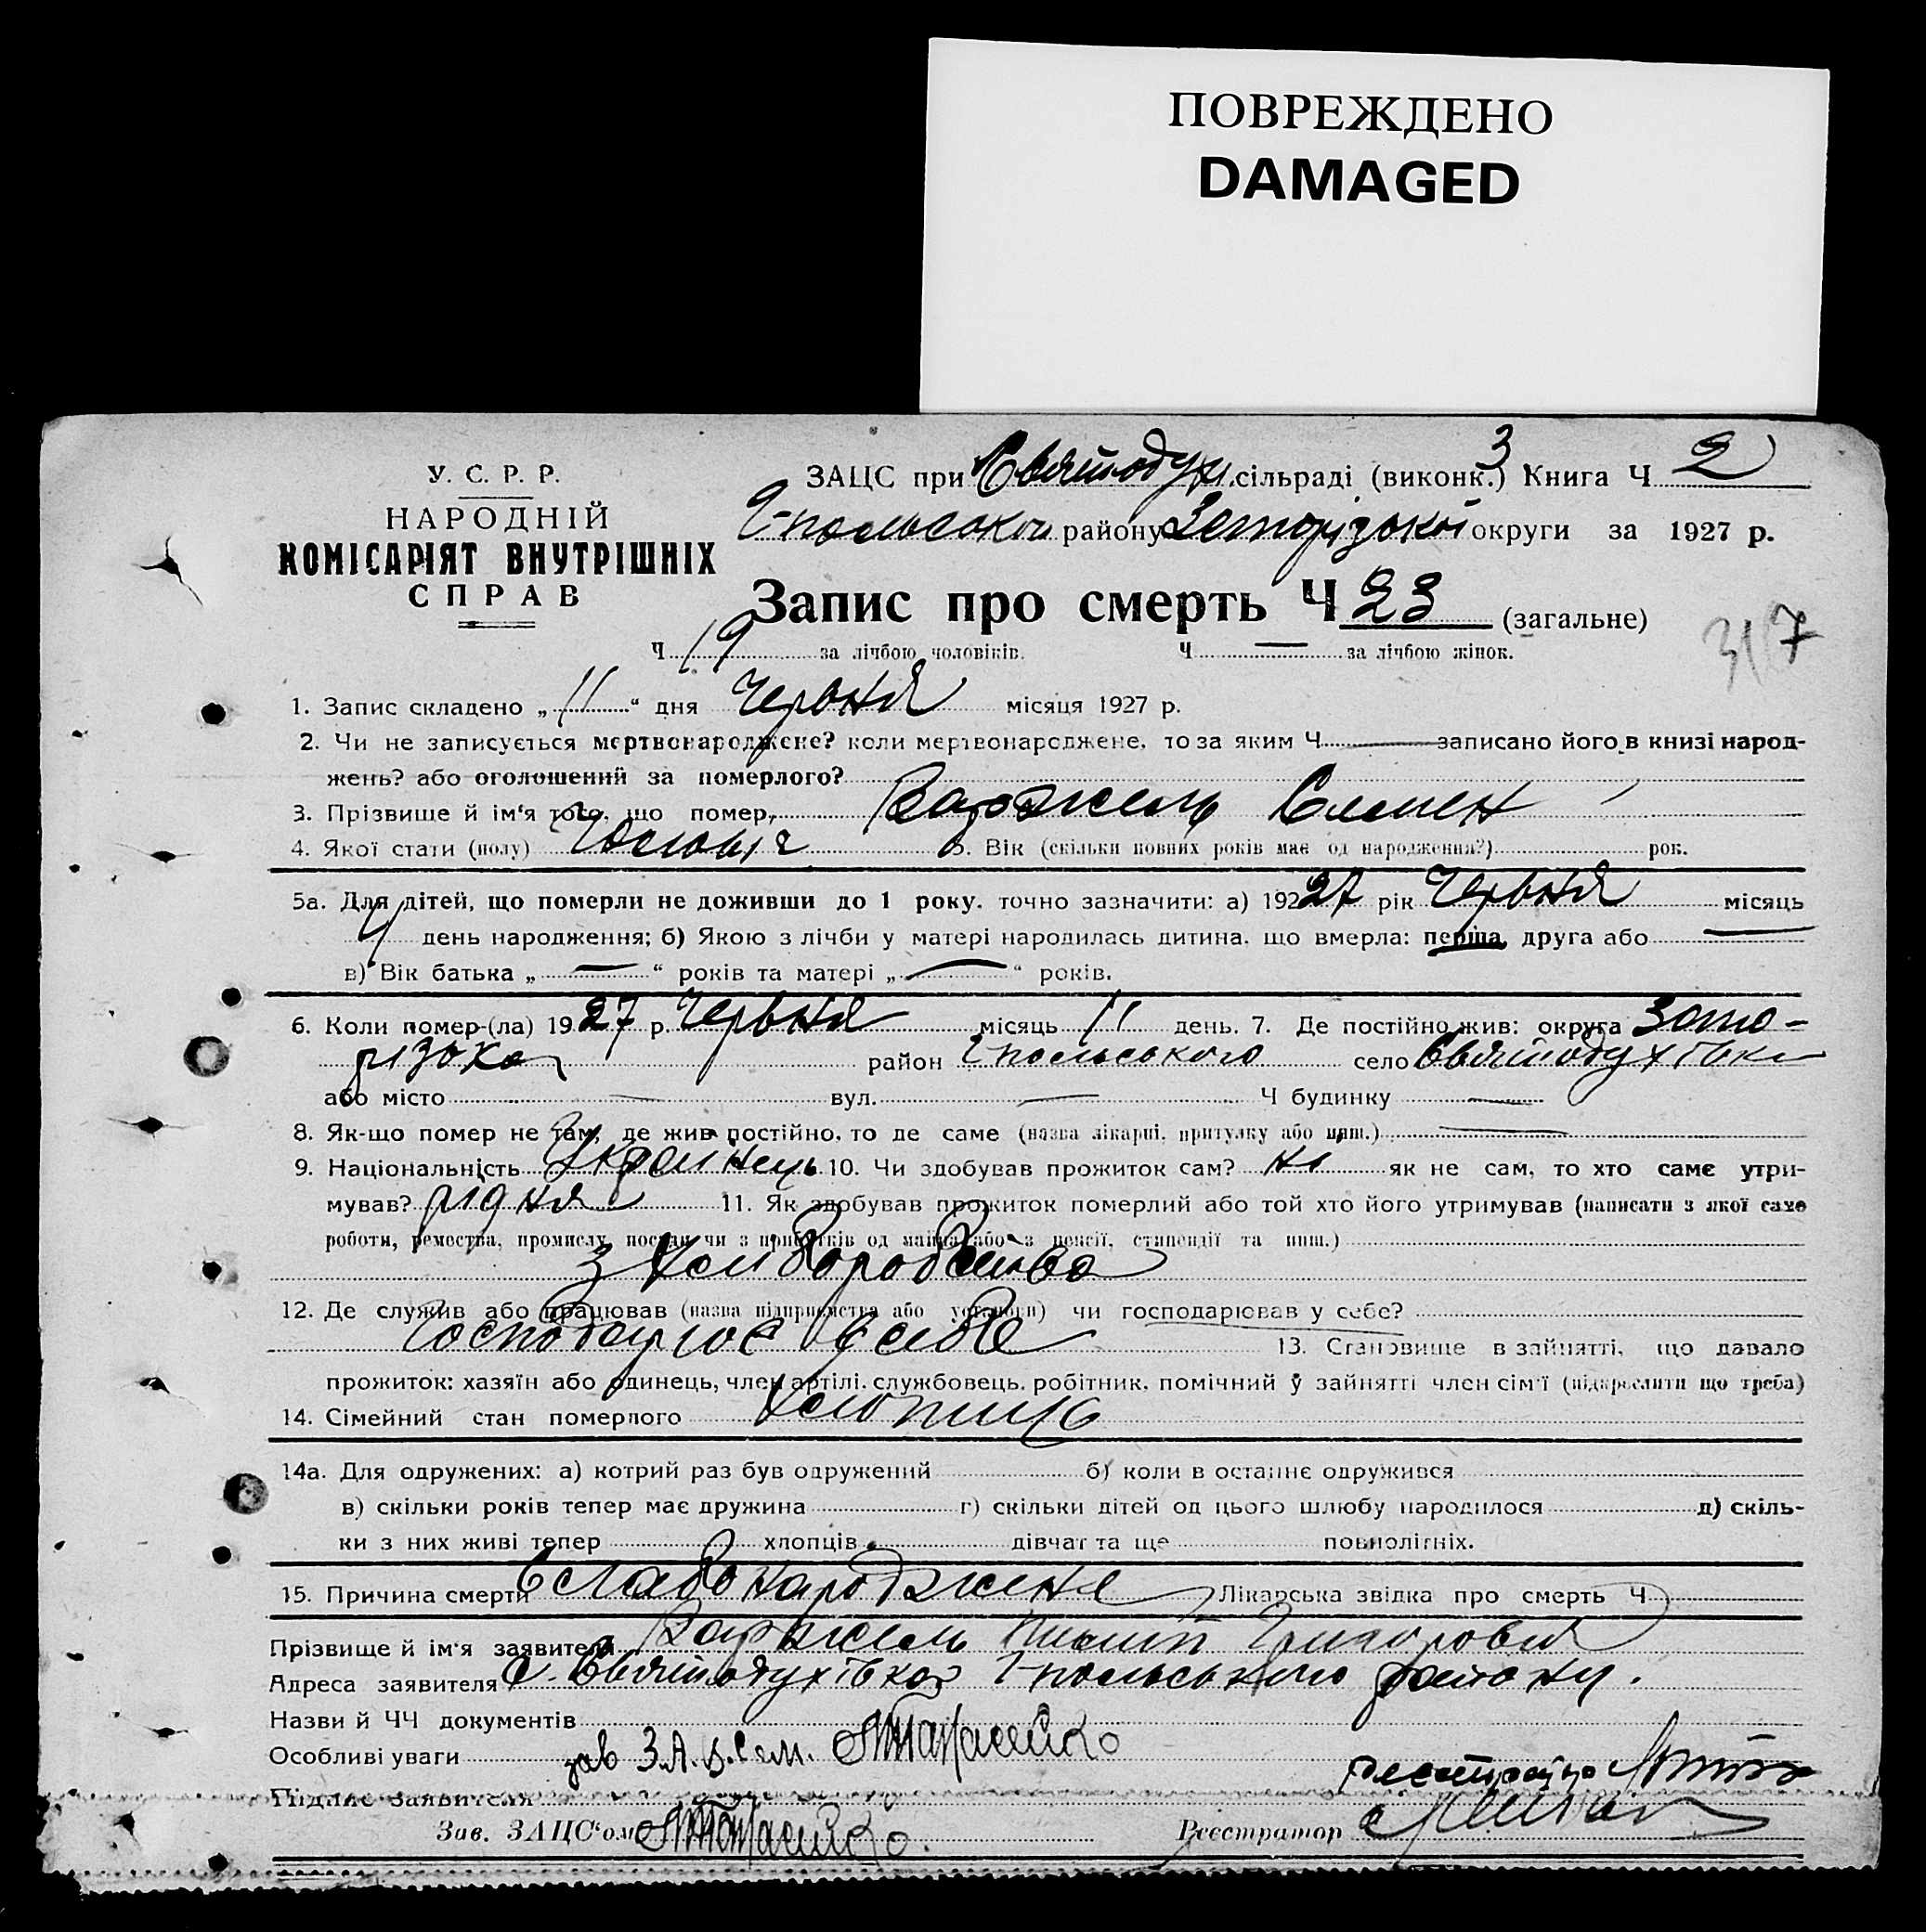 ПОВРЕЖДЕНО
DAMAGED
У. С. Р. Р.
НАРОДНІЙ
КОМІСАРІЯТ ВНУТРІШНІХ
СПРАВ
ЗАЦС при Святодух. сільраді (виконк.) 3 Книга Ч 2
району Запорізької округи за 1927 р.
Запис про смерть Ч 23 (загальне)
317
Ч 19 за лічбою чоловіків. Ч — за лічбою жінок.
1. Запис складено „ 11 “ дня Червня місяця 1927 р.
2. Чи не записується мертвонароджене? коли мертвонароджене, то за яким Ч — записано його в книзі народ-
жень? або оголошений за померлого?
3. Прізвище й ім‘я того, що помер, Семен
4. Якої стати (полу) Чоловіча 5. Вік (скільки повних років має од народження?) рок.
5а. Для дітей, що померли не доживши до 1 року, точно зазначити: а) 192 27 рік Червня місяць
4 день народження; б) Якою з лічби у матері народилась дитина, що вмерла: перша, друга або —
в) Вік батька „ — “ років та матері „ — “ років.
6. Коли помер-(ла) 19 27 р. Червня місяць 11 день. 7. Де постійно жив: округа Запо-
різька район село Святодухівка
або місто — вул. — Ч будинку —
8. Як-що помер не там, де жив постійно, то де саме (назва лікарні, притулку або инш.) —
9. Національність Українець 10. Чи здобував прожиток сам? ні як не сам, то хто саме утри-
мував? рідня 11. Як здобував прожиток померлий або той хто його утримував (написати з якої саме
роботи, ремества, промислу, посади чи з прибутків од майна або з пенсії, стипендії та инш.)
з хліборобства
12. Де служив або працював (назва підприємства або установи) чи господарював у себе?
Господарює у себе 13. Становище в зайнятті, що давало
прожиток: хазяїн або одинець, член артілі, службовець, робітник, помічний у зайнятті член сім‘ї (підкреслити що треба)
14. Сімейний стан померлого
14а. Для одружених: а) котрий раз був одружений б) коли в останнє одружився
в) скільки років тепер має дружина г) скільки дітей од цього шлюбу народилося д) скіль-
ки з них живі тепер хлопців дівчат та ще повнолітніх.
15. Причина смерти Слабонароджене Лікарська звідка про смерть Ч
Прізвище й ім‘я заявителя Григорович
Адреса заявителя с. Святодухівка району.
Назви й ЧЧ документів
Особливі уваги зав
Підпис заявителя
Зав. ЗАЦС‘ом Реєстратор